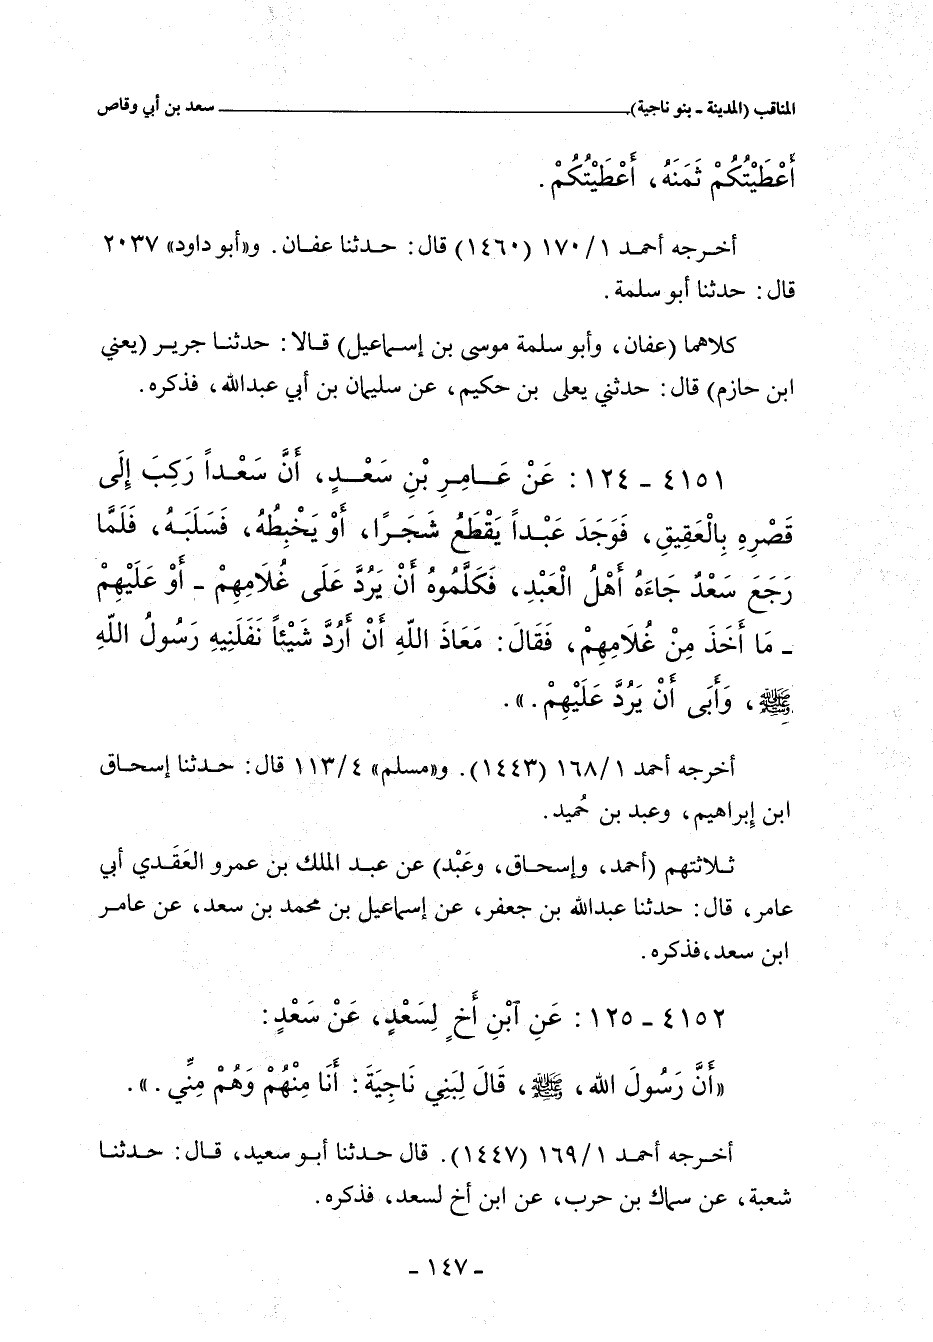 المناقب (المدينة - بنو ناجية). سعد بن أبي وقاص
أَعْطَيْتُكُمْ ثَمَنَهُ، أَعْطَيْتُكُمْ.
أخرجه أحمد ١/ ١٧٠ (١٤٦٠) قال: حدثنا عفان. و«أبو داود» ٢٠٣٧
قال: حدثنا أبو سلمة.
كلاهما (عفان، وأبو سلمة موسى بن إسماعيل) قالا: حدثنا جرير (يعني
ابن حازم) قال: حدثني يعلى بن حكيم، عن سليمان بن أبي عبدالله، فذكره.
٤١٥١ - ١٢٤: عَنْ عَامِرِ بْنِ سَعْدٍ، أَنَّ سَعْداً رَكِبَ إِلَى
قَصْرِهِ بِالْعَقِيقِ، فَوَجَدَ عَبْداً يَقْطَعُ شَجَرًا، أَوْ يَخْبِطُهُ، فَسَلَبَهُ، فَلَمَّا
رَجَعَ سَعْدٌ جَاءَهُ أَهْلُ الْعَبْدِ، فَكَلَّمُوهُ أَنْ يَرُدَّ عَلَى غُلَامِهِمْ - أَوْ عَلَيْهِمْ
- مَا أَخَذَ مِنْ غُلَامِهِمْ، فَقَالَ: مَعَاذَ اللهِ أَنْ أَرُدَّ شَيْئاً نَفَّلَنِيهِ رَسُولُ اللهِ
ﷺ، وَأَبَى أَنْ يَرُدَّ عَلَيْهِمْ.».
أخرجه أحمد ١/ ١٦٨ (١٤٤٣). و«مسلم» ٤/ ١١٣ قال: حدثنا إسحاق
ابن إبراهيم، وعبد بن حُميد.
ثلاثتهم (أحمد، وإسحاق، وعَبْد) عن عبد الملك بن عمرو العَقَدي أبي
عامر، قال: حدثنا عبدالله بن جعفر، عن إسماعيل بن محمد بن سعد، عن عامر
ابن سعد، فذكره.
٤١٥٢ - ١٢٥: عَنِ ٱبْنِ أَخٍ لِسَعْدٍ، عَنْ سَعْدٍ:
«أَنَّ رَسُولَ الله، ﷺ، قَالَ لِبَنِي نَاجِيَةَ: أَنَا مِنْهُمْ وَهُمْ مِنِّي.».
أخرجه أحمد ١/ ١٦٩ (١٤٤٧). قال حدثنا أبو سعيد، قال: حدثنا
شعبة، عن سماك بن حرب، عن ابن أخ لسعد، فذكره.
- ١٤٧ -